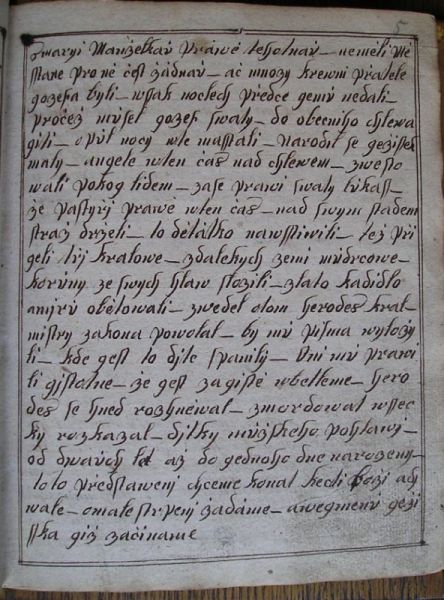 5
zmaryi Manželkaú práwě tehotnaú – neměli Mě
sťane pro ně čest žádnaú – ač mnozy krewni přátelé
gozefa byli – wssak noclech předce gemu nedali –
pročež músel gozef swaty – do obecniho chlewa
giti – o půl nocy wte masstali – Narodil se gezissek
maly – angele wten čas nad chlewem – zwesto
wali pokog lidem – zase prawi swaty lukass –
že pastyrÿ prawě wten čas – nad swym stadem
straž drželi – to děťátko nawsstiwili – též při
geli třÿ kralowe – zdalekych zemi mudrcowe –
korúny ze swych hlaw složili – zlato kadidlo
amÿru obětowali – zwěděl otom herodes kral –
mistry zakona powolal – by mú pisma wyložy
li – kde gest to dÿtě spanily – Oni mú prawi
li gÿstotne – že gest zagistě wbetleme – hero
des se hned rozhněwal – zmordowat wssec
ky rozkazal – dÿtky múžskeho pohlawÿ –
od dwaúch let až do gednoho dne narozenÿ –
toto předstawenÿ chceme konat kectÿ božÿ a chwale
wale – omale strpenÿ žadáme – awegmenú gežÿ
sska giž začiname